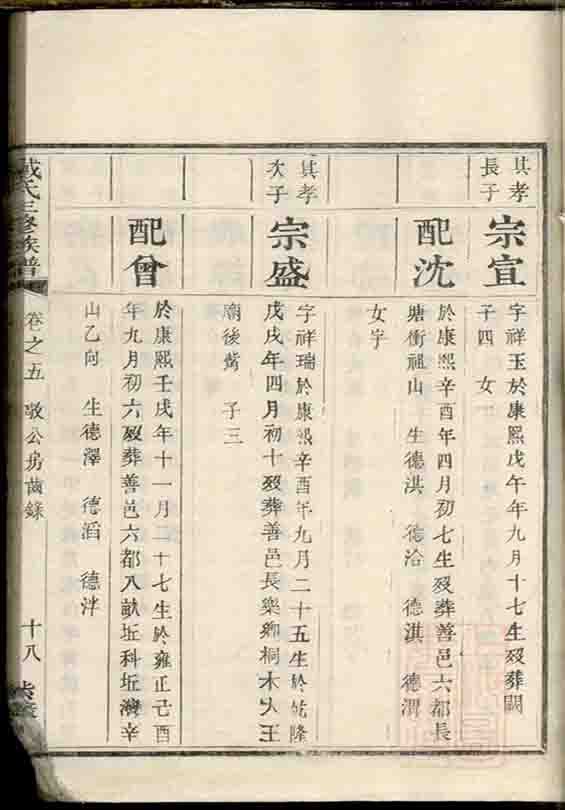 其孝
長子
宗宣
字祥玉於康熙戊午年九月十七生歿葬闕
子四 女一
配沈
於康熙辛酉年四月初七生歿葬善邑六都長
塘衝祖山 生德淇 德洽 德淇 德渭
女字
其孝
次子
宗盛
字祥瑞於康熙辛酉年九月二十五生於乾隆
戊戌年四月初十歿葬善邑長樂鄉桐木人王
廟後 子三
配曾
於康熙壬戌年十一月二十七生於雍正己酉
年九月初六歿葬善邑六都八畝坵科坵灣辛
山乙向 生德澤 德滔 德泮
戴氏三修族譜
卷之五 敬公房齒錄
十八